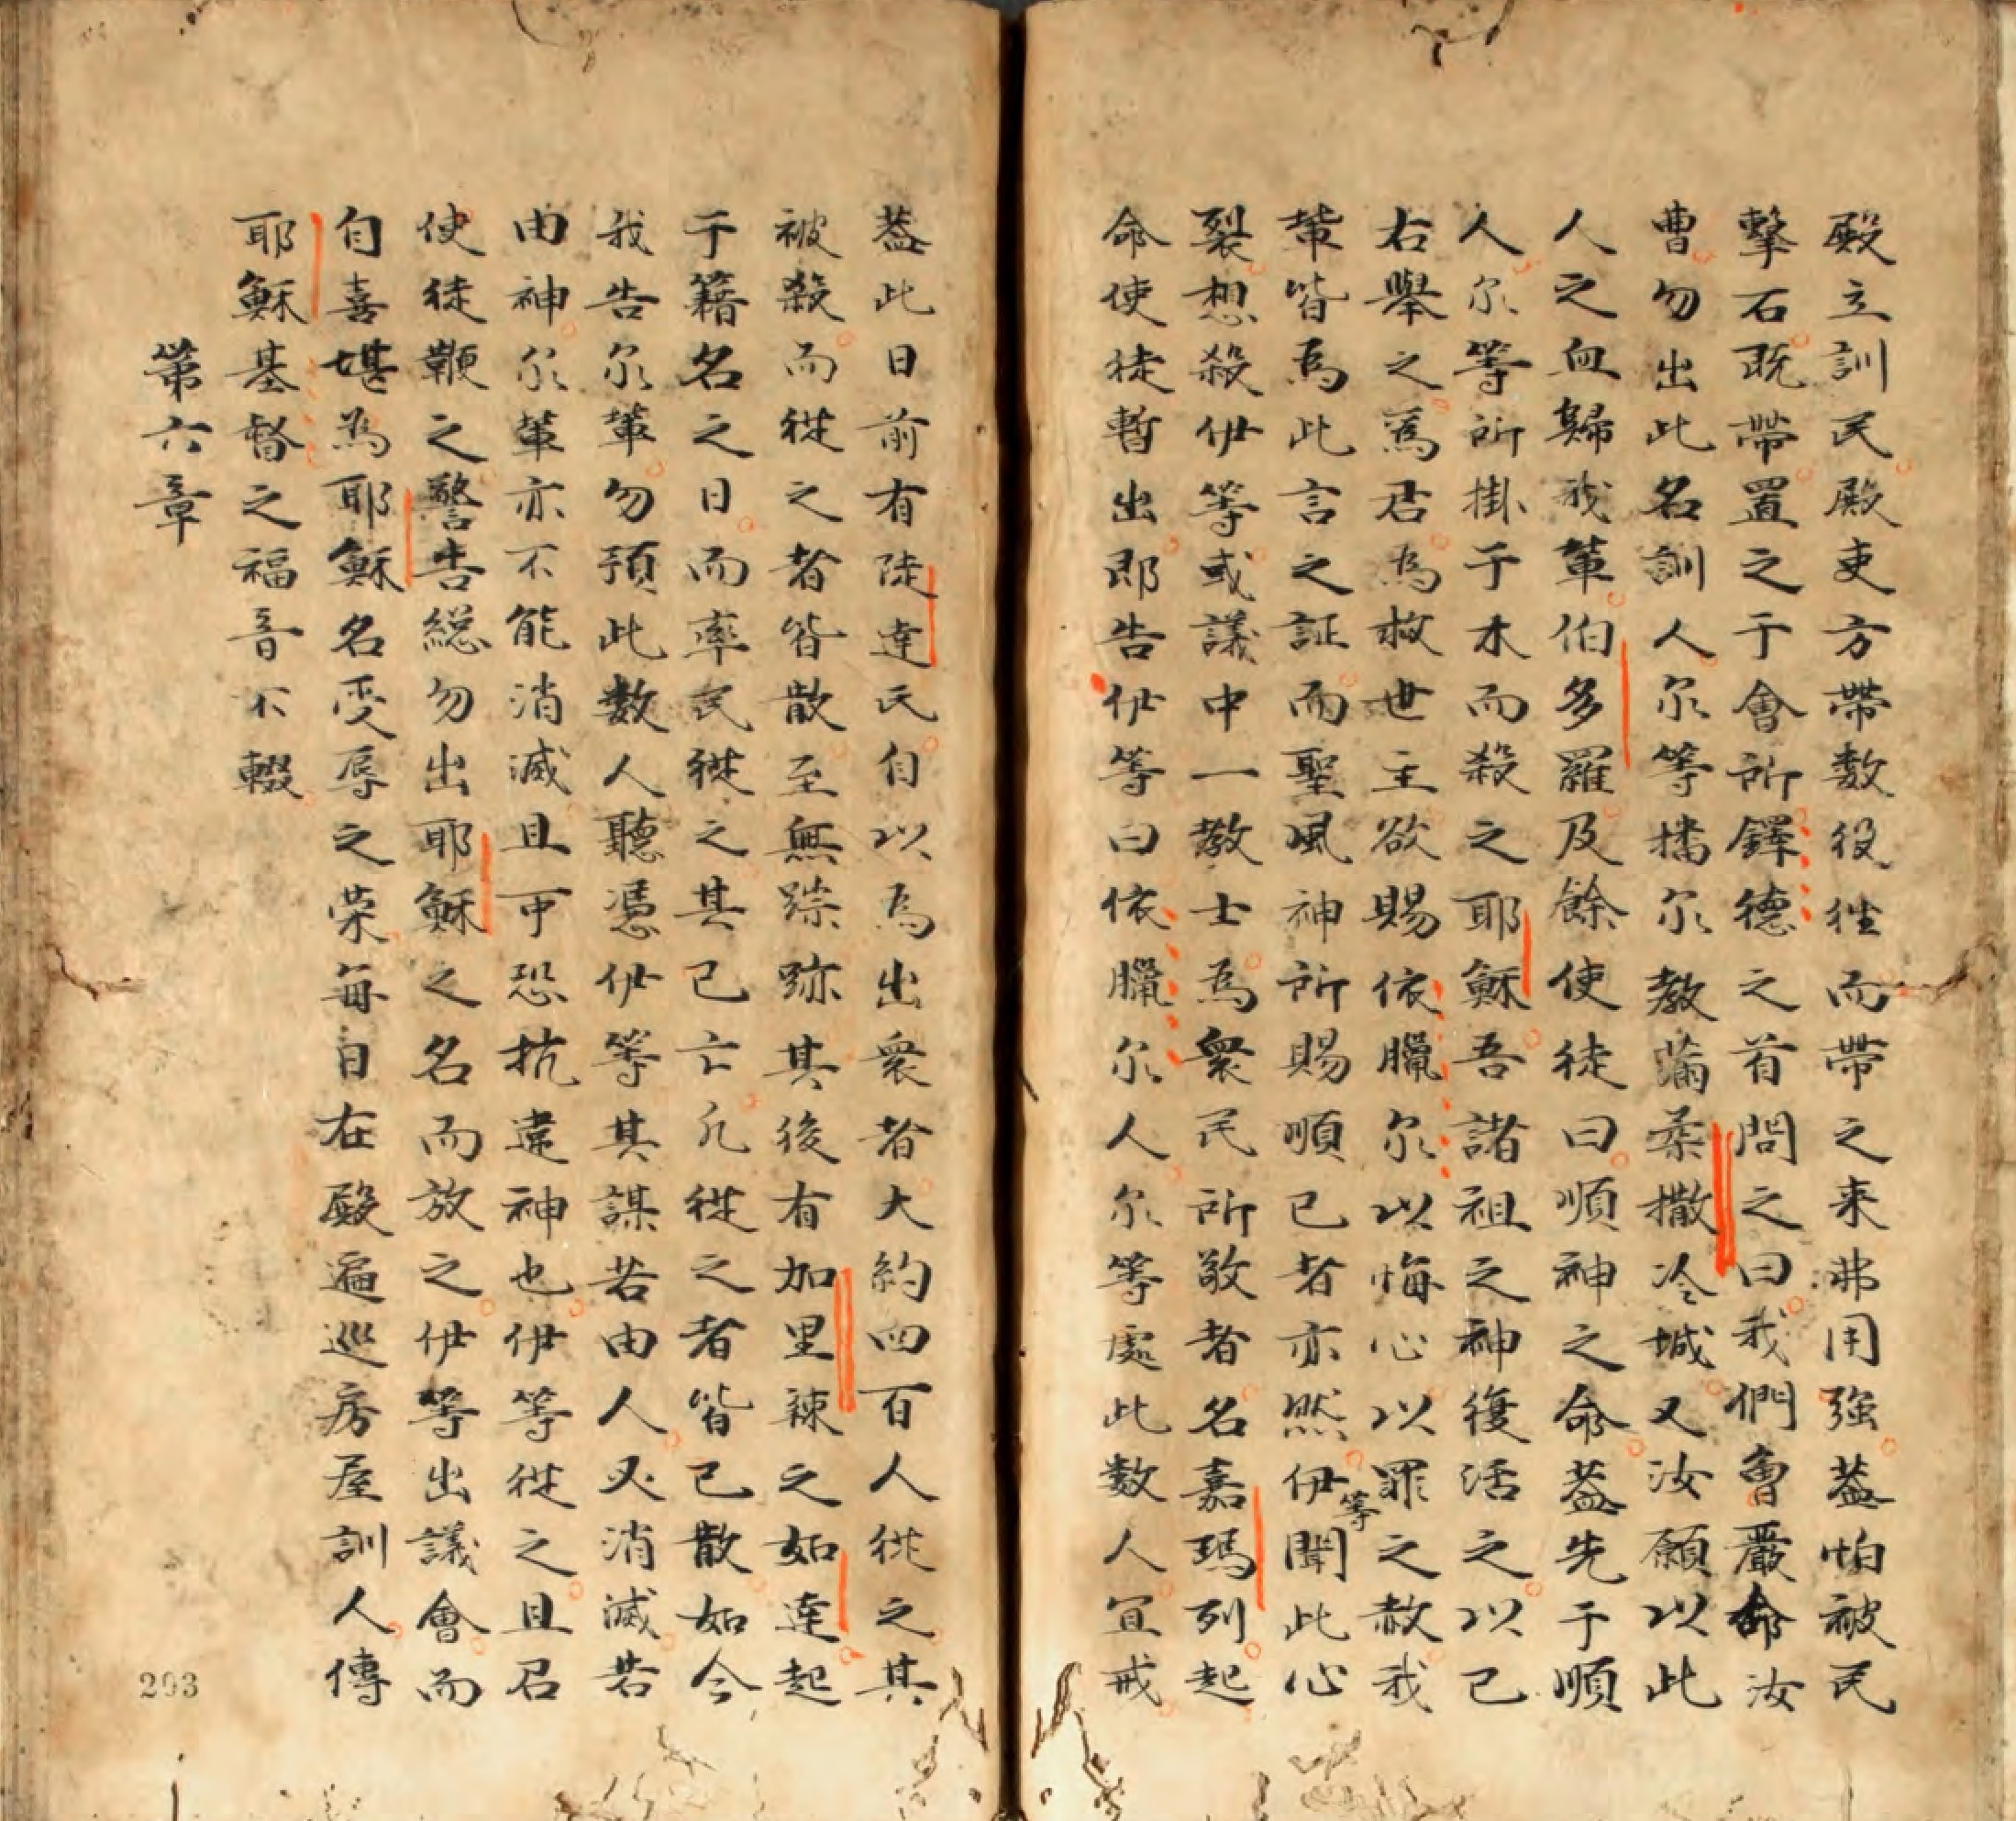 殿立訓民殿吏方帶数役徃而帶之来弗用强葢怕被民
擊石既帶置之于會所鐸德之首問之曰我們會嚴命汝
曹勿出此名訓人尔等擕尔教滿柔撒冷城又汝願以此
人之血歸我輩伯多羅及餘使徒曰順神之命葢先于順
人尔等所掛于木而殺之耶穌吾諸祖之神復活之以己
右舉之爲君為救世主欲賜依臘尔以悔心以罪之赦我
輩皆爲此言之証而聖風神所賜順已者亦然伊等聞此心
裂想殺伊等或議中一教士為衆民所敬者名嘉瑪列起
命使徒暫出即告伊等曰依臘尔人尔等處此数人宜戒
葢此日前有陡達氏自以為出衆者大約四百人從之其
被殺而從之者皆散至無踪跡其後有加里辣之如達起
于籍名之日而率民從之其已亡凢從之者皆已散如今
我告尔輩勿預此數人聽憑伊等其謀若由人必消滅若
由神尔輩亦不能消滅且可恐抗違神也伊等從之且召
使徒鞭之警告縂勿出耶穌之名而放之伊等出議會而
自喜堪為耶穌名受辱之荣每日在殿遍巡房屋訓人傳
耶穌基督之福音不輟
第六章
293